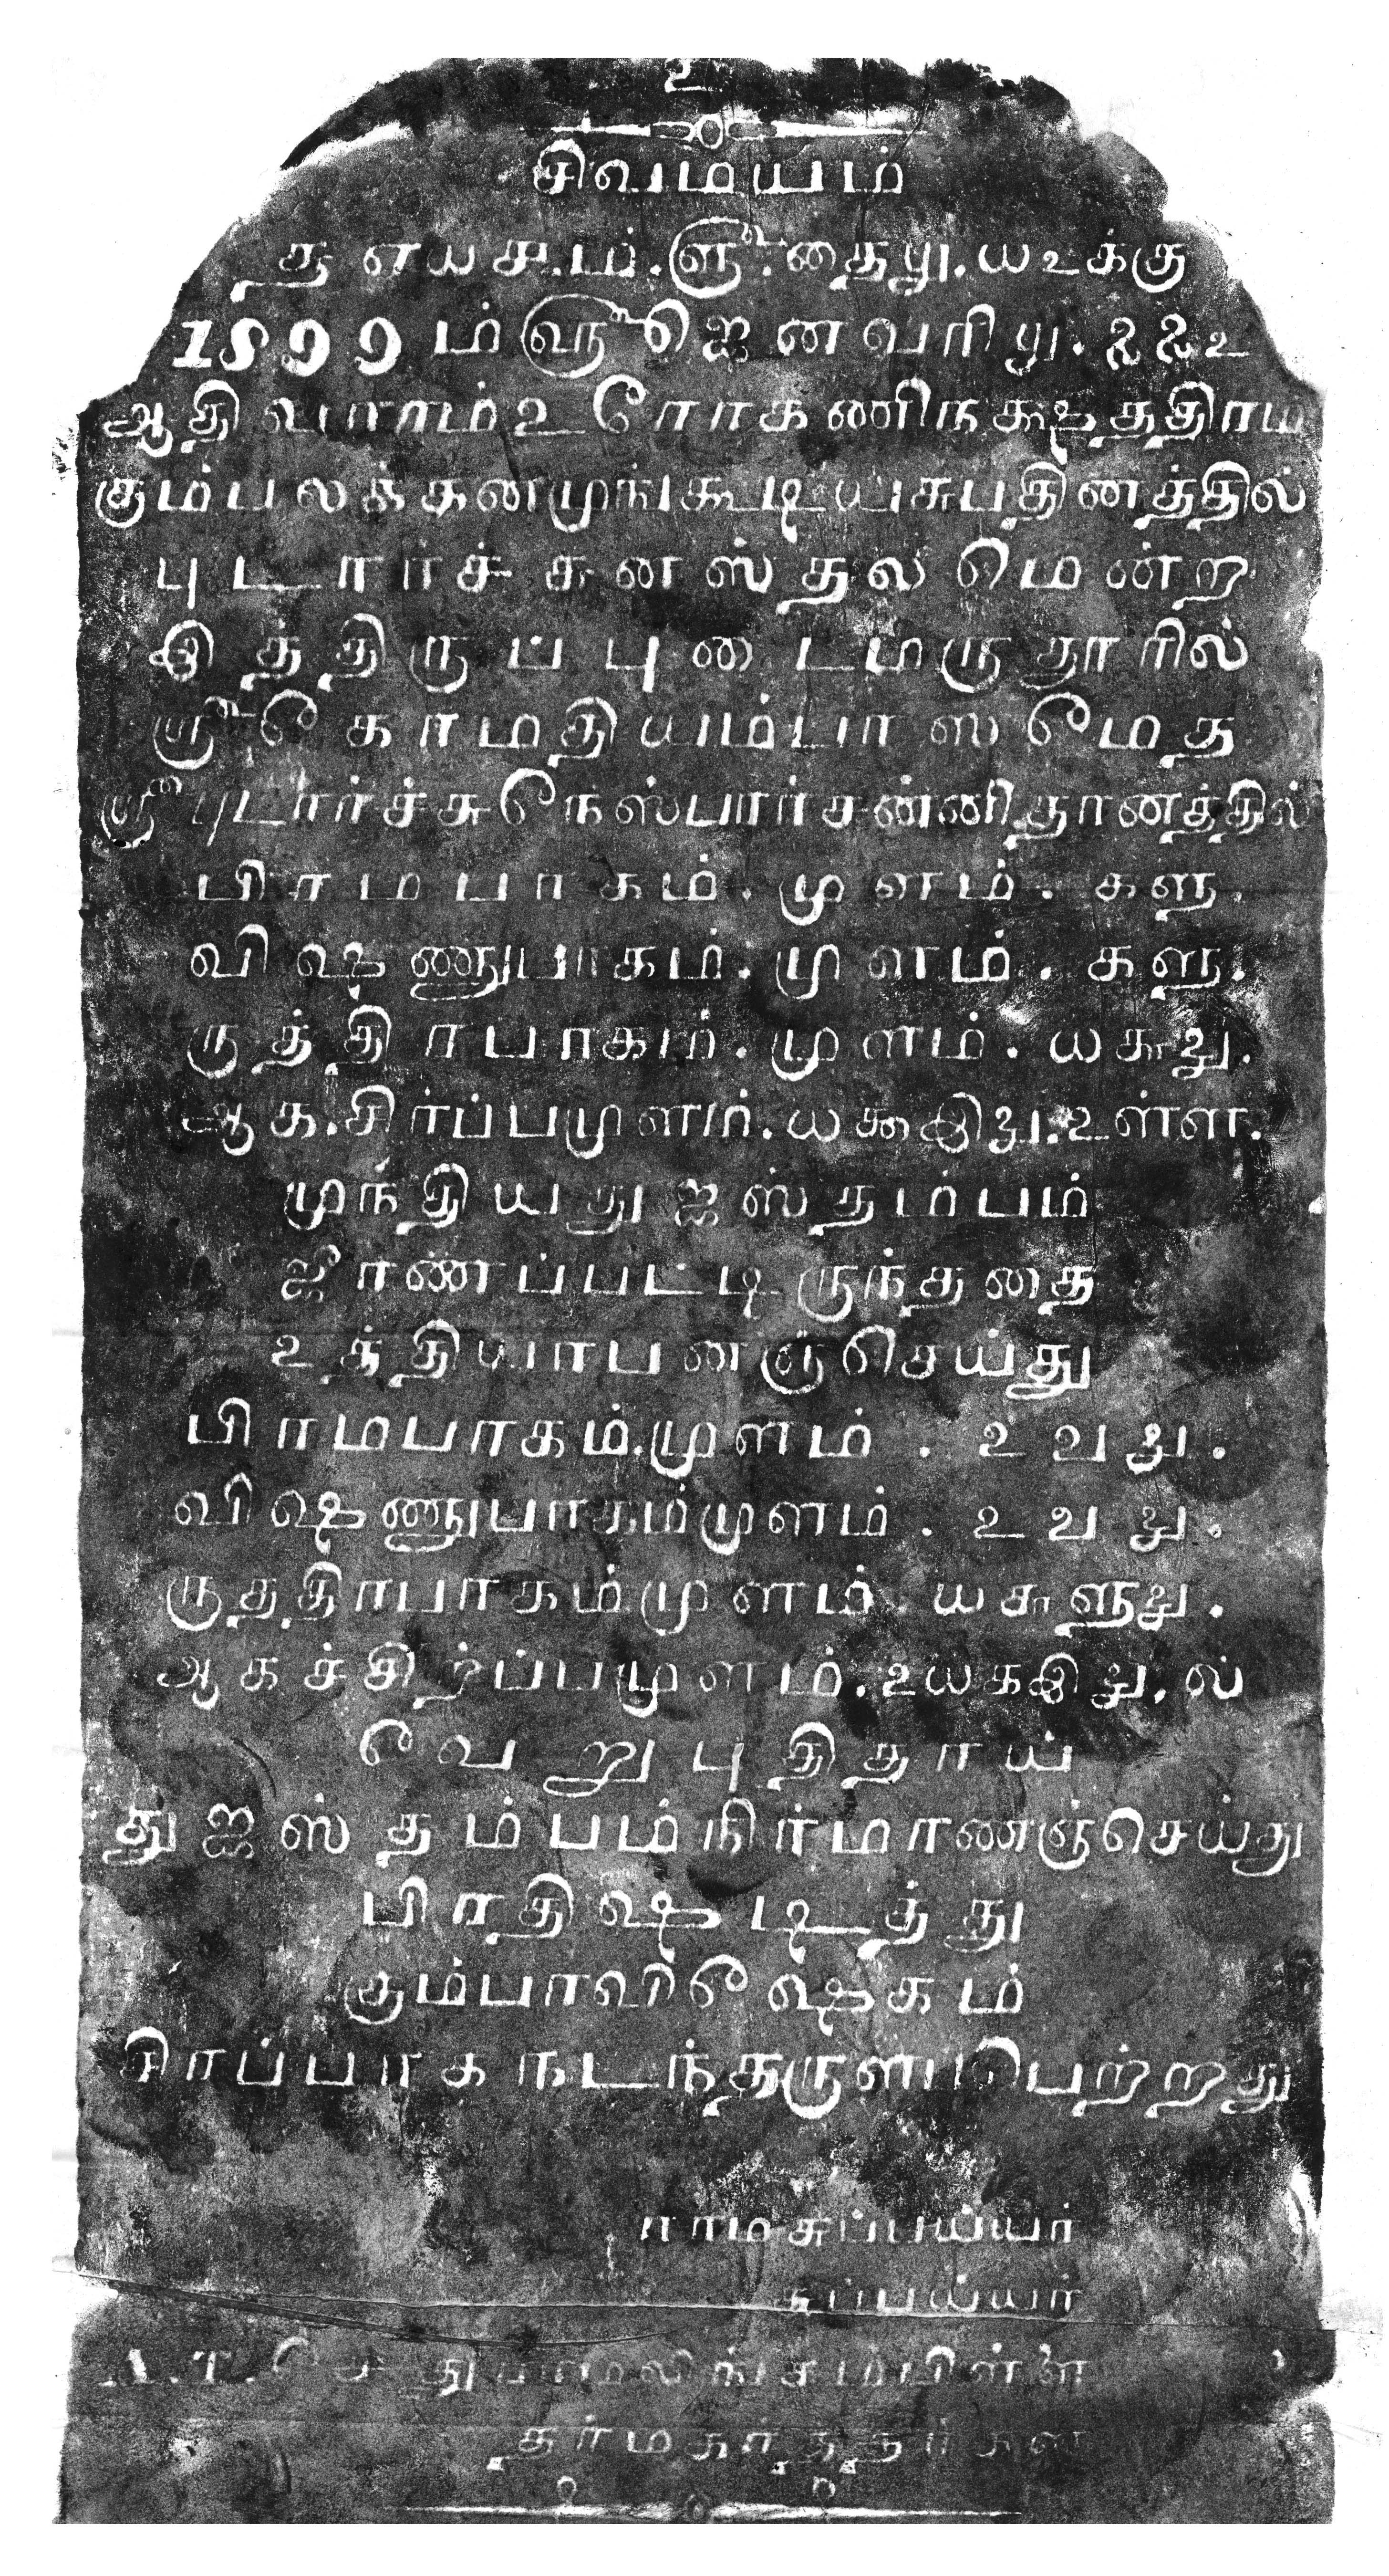 உ
சிவமயம்
த எ ய ச ம் ௵ தைமீ ய உக்கு
1899 ம் ௵ ஜெனவரிமீ 22 உ
ஆதிவாரம் உரோகணிநக்ஷத்திரம
கும்பலக்கனமுங்கூடியசுபதினத்தில்
புடார்ச்சுனஸ்தலமென்ற
இத்திருப்புடைமருதூரில்
ஸ்ரீ கோமதியம்பாஸமேத
ஸ்ரீ புடார்ச்சுநேஸ்பரர்சன்னிதானத்தில்
பிரமபாகம். முளம். களு.
விஷ்ணுபாகம். முளம். களு.
ருத்திரபாகம். முளம். யசுது.
ஆக. சிர்ப்பமுளம். யகூஇது. உள்ள.
முந்தியதுஜஸ்தம்பம்
ஜீரணப்பட்டிருந்ததை
உத்தியாபனஞ்செய்து
பிரமபாகம். முளம் . உவது.
விஷ்ணுபாகம்முளம் . உவது.
ருத்திரபாகம்முளம் யசுளுது.
ஆகச்சிற்ப்பமுளம். உயகஇது, ல்
வேறுபுதிதாய்
துஜஸ்தம்பம்நிர்மாணஞ்செய்து
பிரதிஷ்டித்து
கும்பாவிஷேகம்
சிரப்பாகநடந்தருளப்பெற்றது
ராமசுப்பய்யர்
சுப்பய்யர்
A. T. சேதுராமலிங்கம்பிள்ளை
தர்மகர்த்தர்கள்